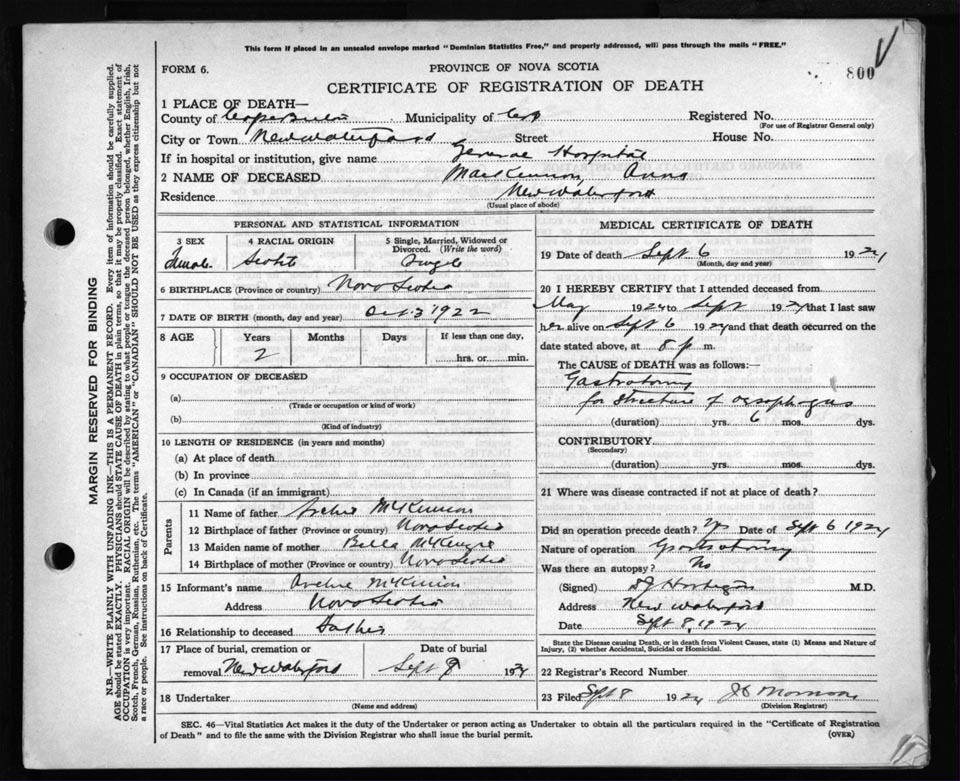 This form if placed in an unsealed envelope marked "Dominion Statistics Free," and properly addressed, will pass through the mails "FREE."
FORM 6.
PROVINCE OF NOVA SCOTIA
800
CERTIFICATE OF REGISTRATION OF DEATH
1 PLACE OF DEATH—
County of Cape Breton Municipality of C.B. Registered No.
(For use of Registrar General only)
City or Town New Waterford Street House No.
If in hospital or institution, give name General Hospital
2 NAME OF DECEASED MacKinnon, Anna
Residence New Waterford
(Usual place of abode)
PERSONAL AND STATISTICAL INFORMATION
3 SEX 4 RACIAL ORIGIN 5 Single, Married, Widowed or Divorced. (Write the word)
Female Scotch Single
6 BIRTHPLACE (Province or country) Nova Scotia
7 DATE OF BIRTH (month, day and year) Oct. 3 1922
8 AGE Years Months Days If less than one day,
2 hrs. or min.
9 OCCUPATION OF DECEASED
(a)
(Trade or occupation or kind of work)
(b)
(Kind of industry)
10 LENGTH OF RESIDENCE (in years and months)
(a) At place of death
(b) In province
(c) In Canada (if an immigrant)
Parents
11 Name of father Archie McKinnon
12 Birthplace of father (Province or country) Nova Scotia
13 Maiden name of mother Bella McKenzie
14 Birthplace of mother (Province or country) Nova Scotia
15 Informant's name Archie McKinnon
Address Nova Scotia
16 Relationship to deceased Father
17 Place of burial, cremation or removal Date of burial
New Waterford Sept 8 1924
18 Undertaker
(Name and address)
MEDICAL CERTIFICATE OF DEATH
19 Date of death Sept 6 1924
(Month, day and year)
20 I HEREBY CERTIFY that I attended deceased from
May 1924 to Sept 1924 that I last saw
her alive on Sept 6 1924 and that death occurred on
date stated above, at 8 p m.
The CAUSE OF DEATH was as follows:—
Gastrotomy
for Stricture of oesophagus
(duration) yrs. 6 mos. dys.
CONTRIBUTORY
(Secondary)
(duration) yrs. mos. dys.
21 Where was disease contracted if not at place of death?
Did an operation precede death? Yes Date of Sept 6 1924
Nature of operation Gastrotomy
Was there an autopsy? No
(Signed) M.D.
Address New Waterford
Date Sept 8, 1924
State the Disease causing Death, or in death from Violent Causes, state (1) Means and Nature of
Injury, (2) whether Accidental, Suicidal or Homicidal.
22 Registrar's Record Number
23 Filed Sept 8 1924
(Division Registrar)
SEC. 46—Vital Statistics Act makes it the duty of the Undertaker or person acting as Undertaker to obtain all the particulars required in the "Certificate of Registration
of Death" and to file the same with the Division Registrar who shall issue the burial permit. (OVER)
MARGIN RESERVED FOR BINDING
N.B.—WRITE PLAINLY WITH UNFADING INK—THIS IS A PERMANENT RECORD. Every item of information should be carefully supplied.
AGE should be stated EXACTLY. PHYSICIANS should STATE CAUSE OF DEATH in plain terms, so that it may be properly classified. Exact statement of
OCCUPATION is very important. RACIAL ORIGIN will be described by stating to what people or tongue the deceased person belonged, whether English, Irish,
Scotch, French, German, Russian, Ruthenian, etc. The terms "AMERICAN" or "CANADIAN" SHOULD NOT BE USED as they express citizenship but not
a race or people. See instructions on back of Certificate.